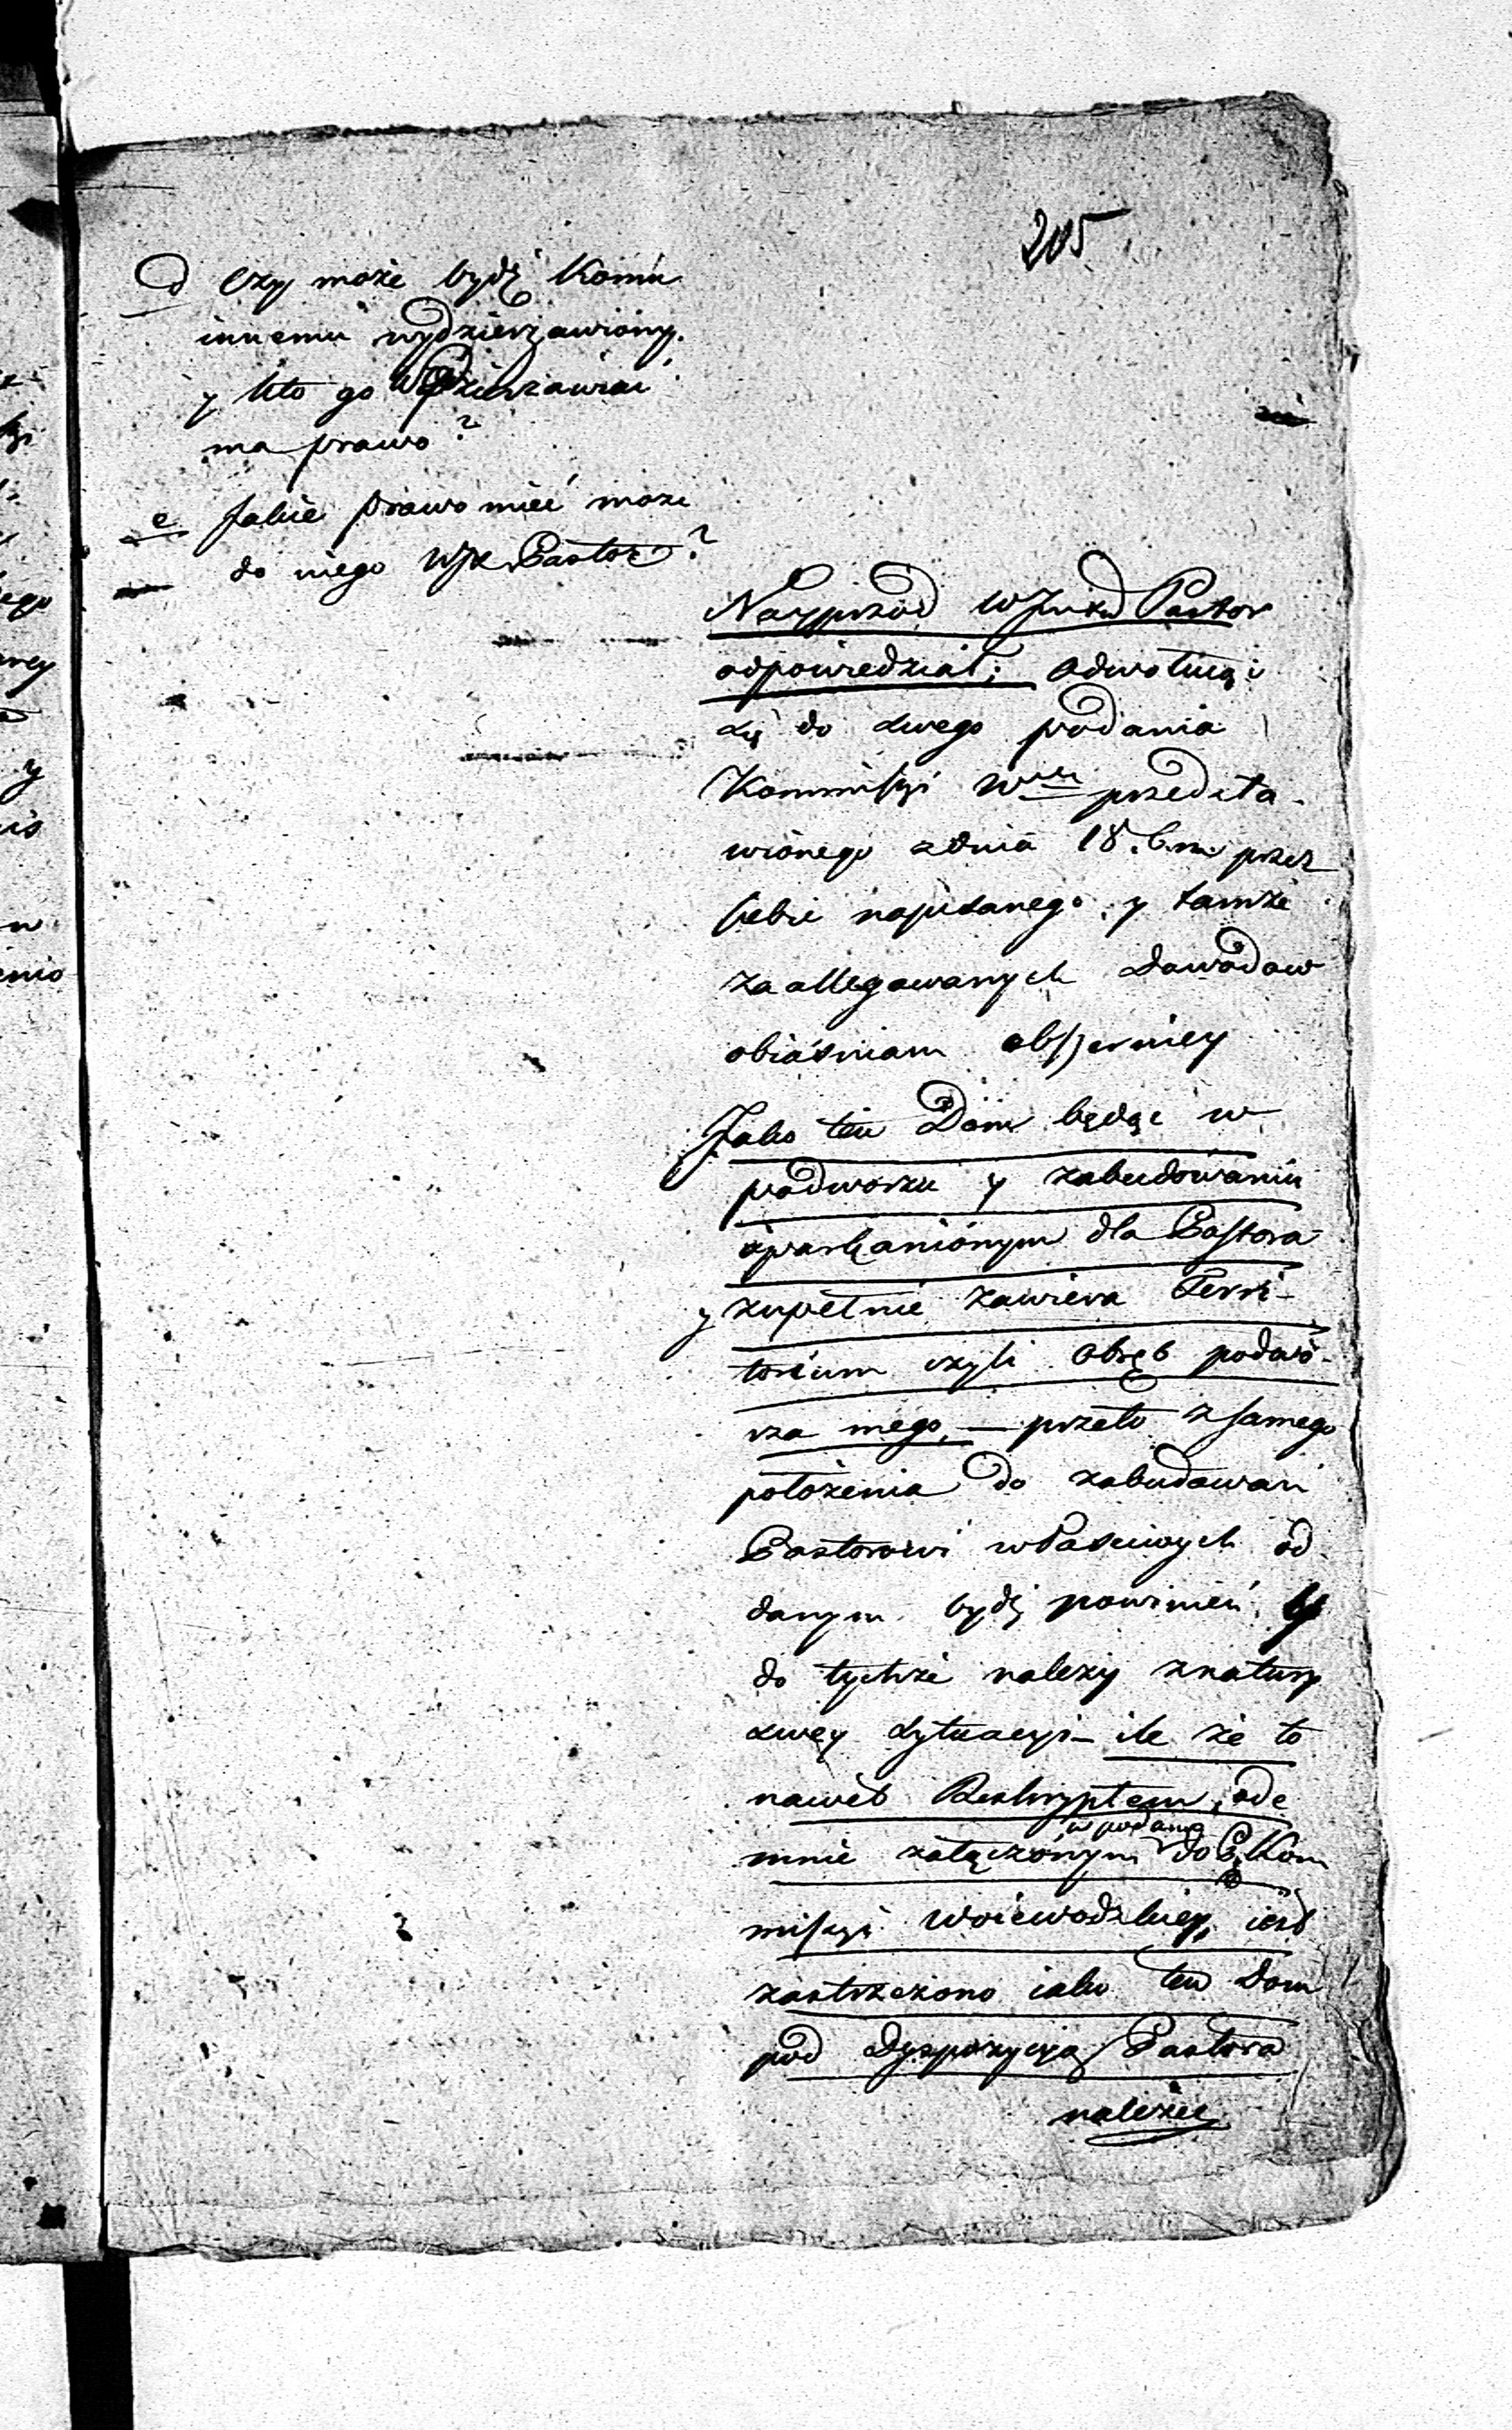 205
d Czy może bydź komu
innemu wydzierżawiony.
y kto go wydzierżawiać
ma prawo?
e Jakie prawo mieć może
do niego WJX Pastor?
Nayprzod Pastor
odpowiedział; odwołuiąc
się do swego podania
Kommissyi przedsta-
wionego zdnia 18. b.m. przez
siebie napisanego y tamże
zaallegowanych dowodow
obiaśniam obszerniey
Jako ten Dom będąc w
podworzu y zabudowaniu
oparkanionym dla Pastora
y zupełnie zawiera Terri-
torium czyli obręb podwo-
rza mego, — przeto z samego
położenia do zabudowań
Pastorowi własciwych od
danym bydź powinien y
do tychże należy znatury
swey sytuacyi — ile że to
nawet Reskryptem, ode
mnie załączonym w podaniu do P. Kom
missyi Woiewodzkiey, iest
zastrzeżono iako ten Dom
pod Dyspozycyą Pastora
należeć